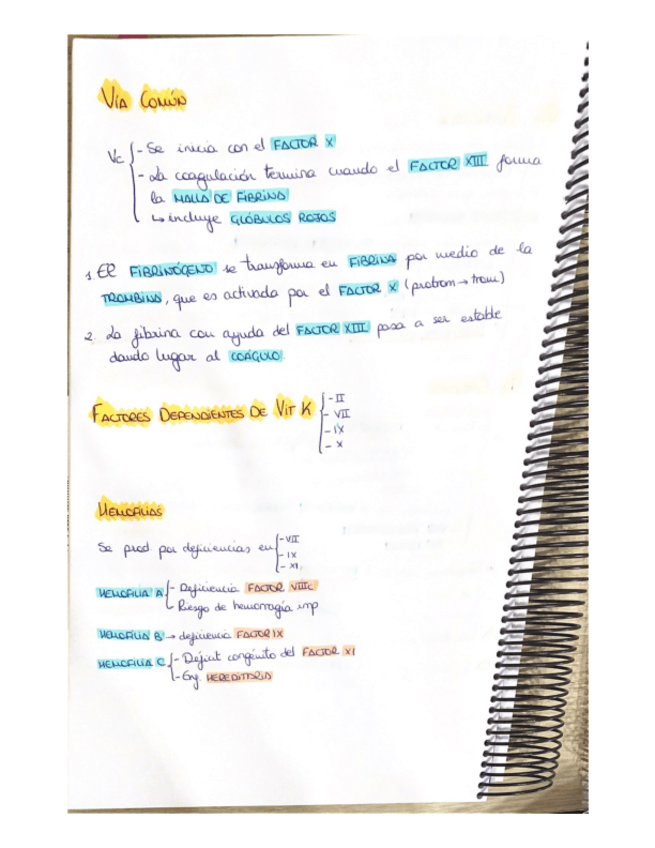 VÍA COMÚN
Vc - Se inicia con el FACTOR X
- La coagulación termina cuando el FACTOR XIII forma
la MALLA DE FIBRINA
↳ incluye GLÓBULOS ROJOS
1. El FIBRINÓGENO se transforma en FIBRINA por medio de la
TROMBINA, que es activada por el FACTOR X (protrom → trom)
2. La fibrina con ayuda del FACTOR XIII pasa a ser estable
dando lugar al COÁGULO.
FACTORES DEPENDIENTES DE VIT K
- II
- VII
- IX
- X
HEMOFILIAS
Se prod. por deficiencias en
- VII
- IX
- XI
HEMOFILIA A - Deficiencia FACTOR VIIIc
- Riesgo de hemorragia imp
HEMOFILIA B → deficiencia FACTOR IX
HEMOFILIA C - Déficit congénito del FACTOR XI
- Enf. HEREDITARIA